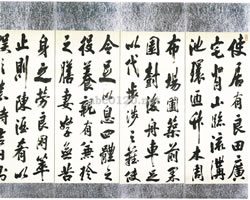 使居有良田廣
宅背山臨流溝
池環匝竹木周
布場圃築前果
園樹舟車足
以代步涉之難使
令足以息四體之
役養親有兼珍
之膳妻孥無苦
身之勞良朋萃
止則陳酒肴以